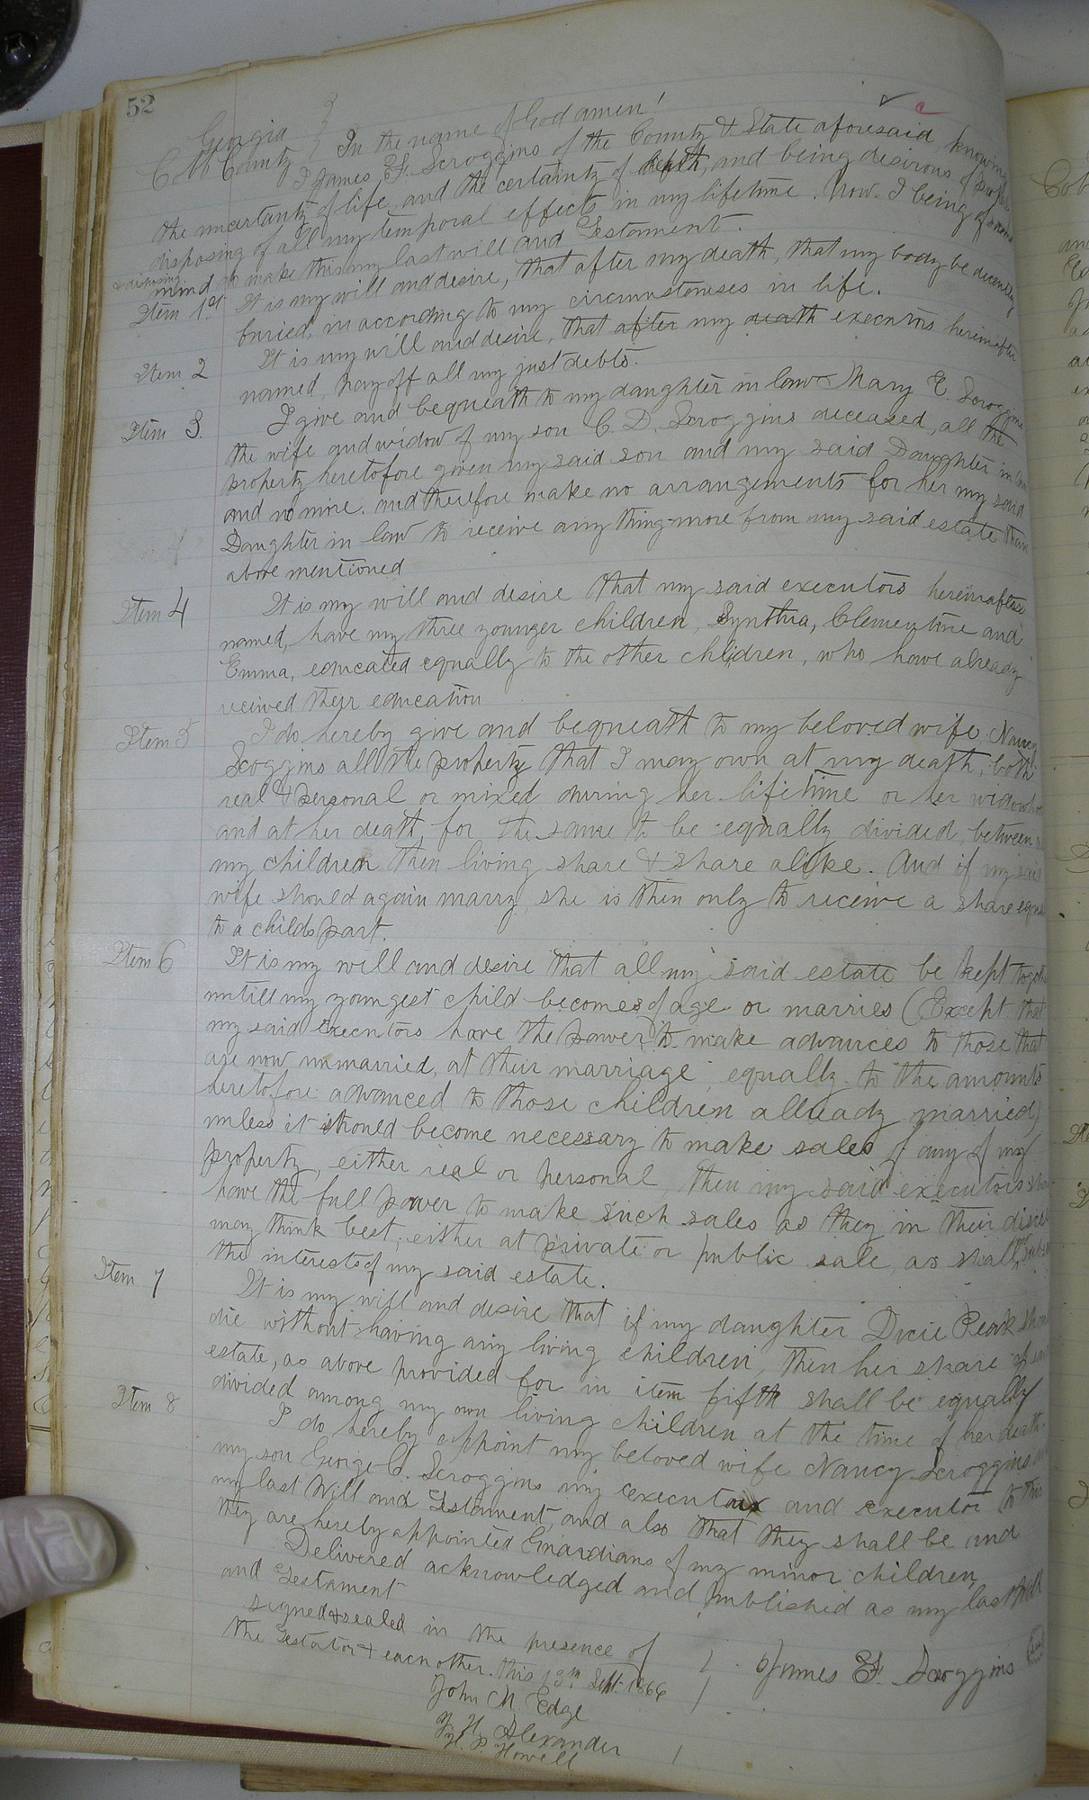 52
Georgia } In the name of God amen!
Cobb County } I James F. Scroggins of the County & State aforesaid, knowing
the uncertanty of life, and the certainty of death, and being desirous of
disposing of all my temporal effects in my lifetime. Now I being of sound
& disposing mind do make this my last will and Testament.
Item 1st It is my will and desire, that after my death, that my body be decently
buried, in according to my circumstances in life.
Item 2 It is my will and desire, that after my death executors hereinafter
named, pay off all my just debts.
Item 3. I give and bequeath to my daughter in law Mary E. Scroggins
the wife and widow of my son C. D. Scroggins deceased, all the
property heretofore given my said son and my said Daughter in law
and no more. and therefore make no arrangements for her my said
Daughter in law to receive any thing more from my said estate than
above mentioned
Item 4 It is my will and desire that my said executors hereinafter
named, have my three younger children, Synthia, Clementine and
Emma, educated equally to the other children, who have already
recived their education
Item 5 I do hereby give and bequeath to my beloved wife Nancy
Scoggins all the property that I may own at my death, both
real & personal or mixed during her lifetime or her
and at her death, for the same to be equally divided, between
my children then living share & share alike. And if my said
wife should again marry, she is then only to receive a share equal
to a childs part.
Item 6 It is my will and desire that all my said estate be kept together
untill my youngest child becomes of age or marries (Except that
my said executors have the power to make advances to those that
are now unmarried, at their marriage equally to the amounts
heretofore advanced to those children allready married)
unless it should become necessary to make sales of any of my
property, either real or personal, then my said executors
have the full power to make such sales as they in their
may think best, either at private or public sale, as shall
the interests of my said estate.
Item 7 It is my will and desire that if my daughter Dicie Peak should
die without having any living children, then her share of
estate, as above provided for in item fifth shall be equally
divided among my own living children at the time of her death.
Item 8 I do hereby appoint my beloved wife Nancy Scroggins
my son George C. Scroggins my executors and executor to this
my last Will and Testament, and also that they shall be and
they are hereby appointed Guardians of my minor children.
Delivered acknowledged and published as my last Will
and Testament
signed & sealed in the presence of
the Testator & each other. this 13th Sept. 1866 } James F. Scroggins
John M. Edge
Alexander
Howell